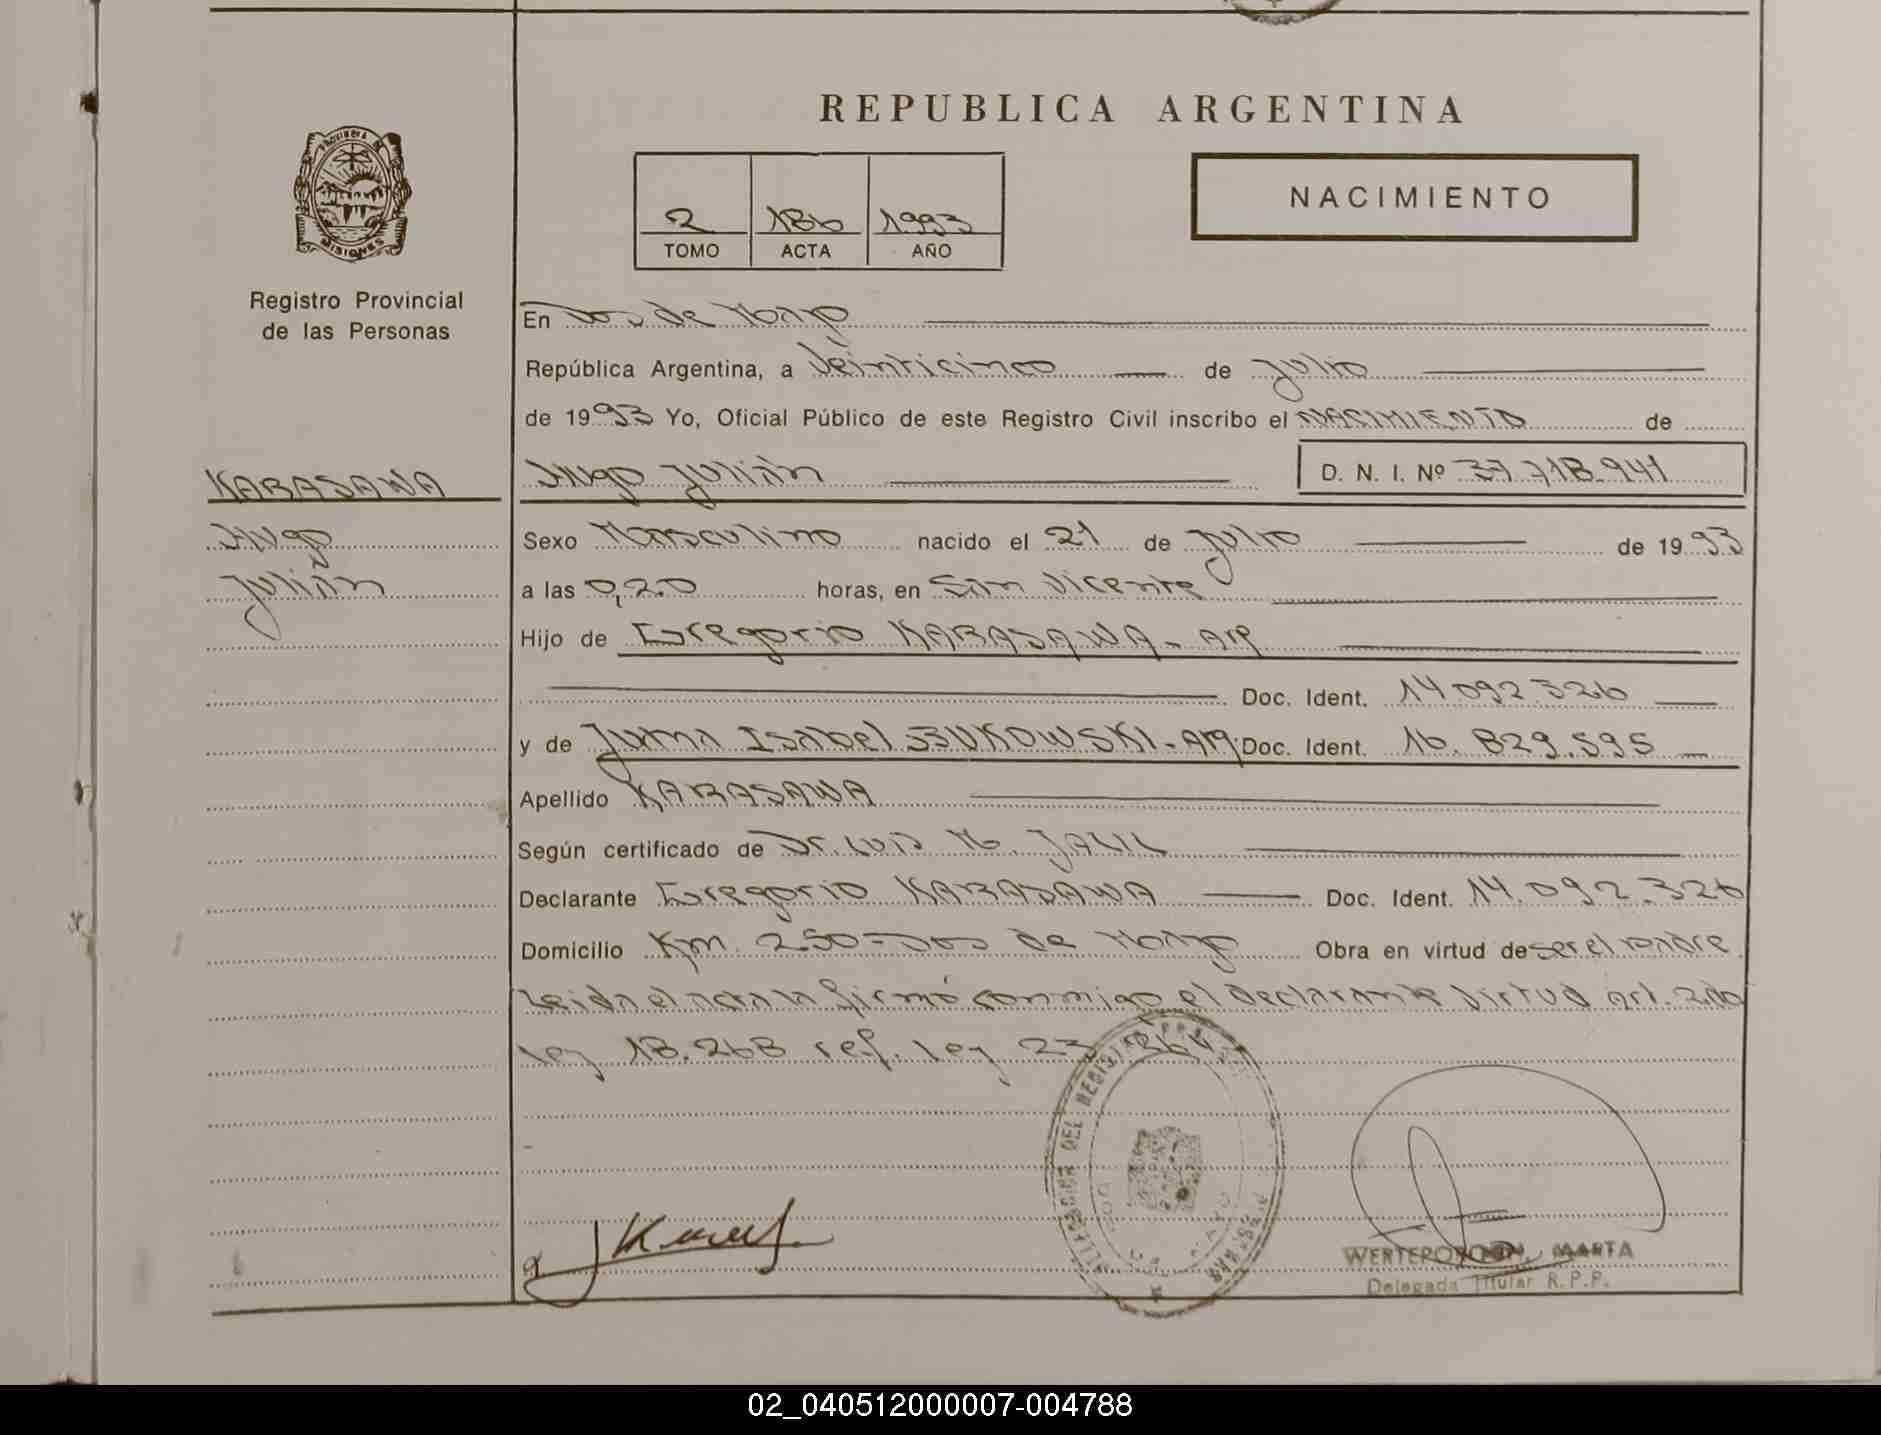 REPUBLICA ARGENTINA
PROVINCIA DE
MISIONES
Registro Provincial
de las Personas
2 186 1993
TOMO ACTA AÑO
NACIMIENTO
En Dos de Mayo
República Argentina, a Veinticinco de Julio
de 1993 Yo, Oficial Público de este Registro Civil inscribo el NACIMIENTO de
KARASAWA
Hugo Julián D. N. I. Nº 37.718.941
Hugo
Sexo Masculino nacido el 21 de Julio de 1993
Julián
a las 0,20 horas, en San Vicente
Hijo de Gregorio KARASAWA - Arg
Doc. Ident. 14.092.326
y de Juana Isabel SBUKOWSKI - Arg. Doc. Ident. 16.829.595
Apellido KARASAWA
Según certificado de Dr. Luis M. JALIL
Declarante Gregorio KARASAWA Doc. Ident. 14.092.326
Domicilio Km. 250 - Dos de Mayo Obra en virtud de ser el padre
Leida el acta la firmó conmigo el declarante virtud Art. 2do
ley 18.268 ref. ley 23.264
DELEGACION DEL REGISTRO
DOS DE MAYO
MARTA
Delegada Titular R.P.P.
02_040512000007-004788